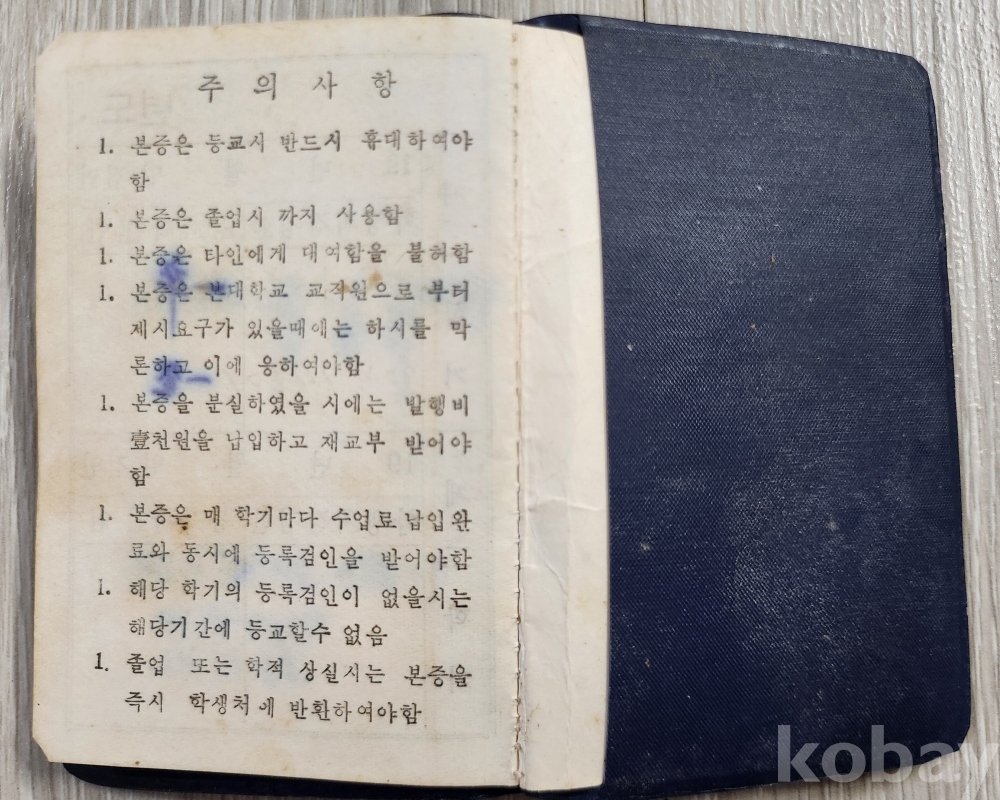 주의사항
1. 본증은 등교시 반드시 휴대하여야
함
1. 본증은 졸업시 까지 사용함
1. 본증은 타인에게 대여함을 불허함
1. 본증은 본대학교 교직원으로 부터
제시요구가 있을때에는 하시를 막
론하고 이에 응하여야함
1. 본증을 분실하였을 시에는 발행비
壹천원을 납입하고 재교부 받어야
함
1. 본증은 매 학기마다 수업료 납입완
료와 동시에 등록검인을 받어야함
1. 해당 학기의 등록검인이 없을시는
해당기간에 등교할수 없음
1. 졸업 또는 학적 상실시는 본증을
즉시 학생처에 반환하여야함
kobay